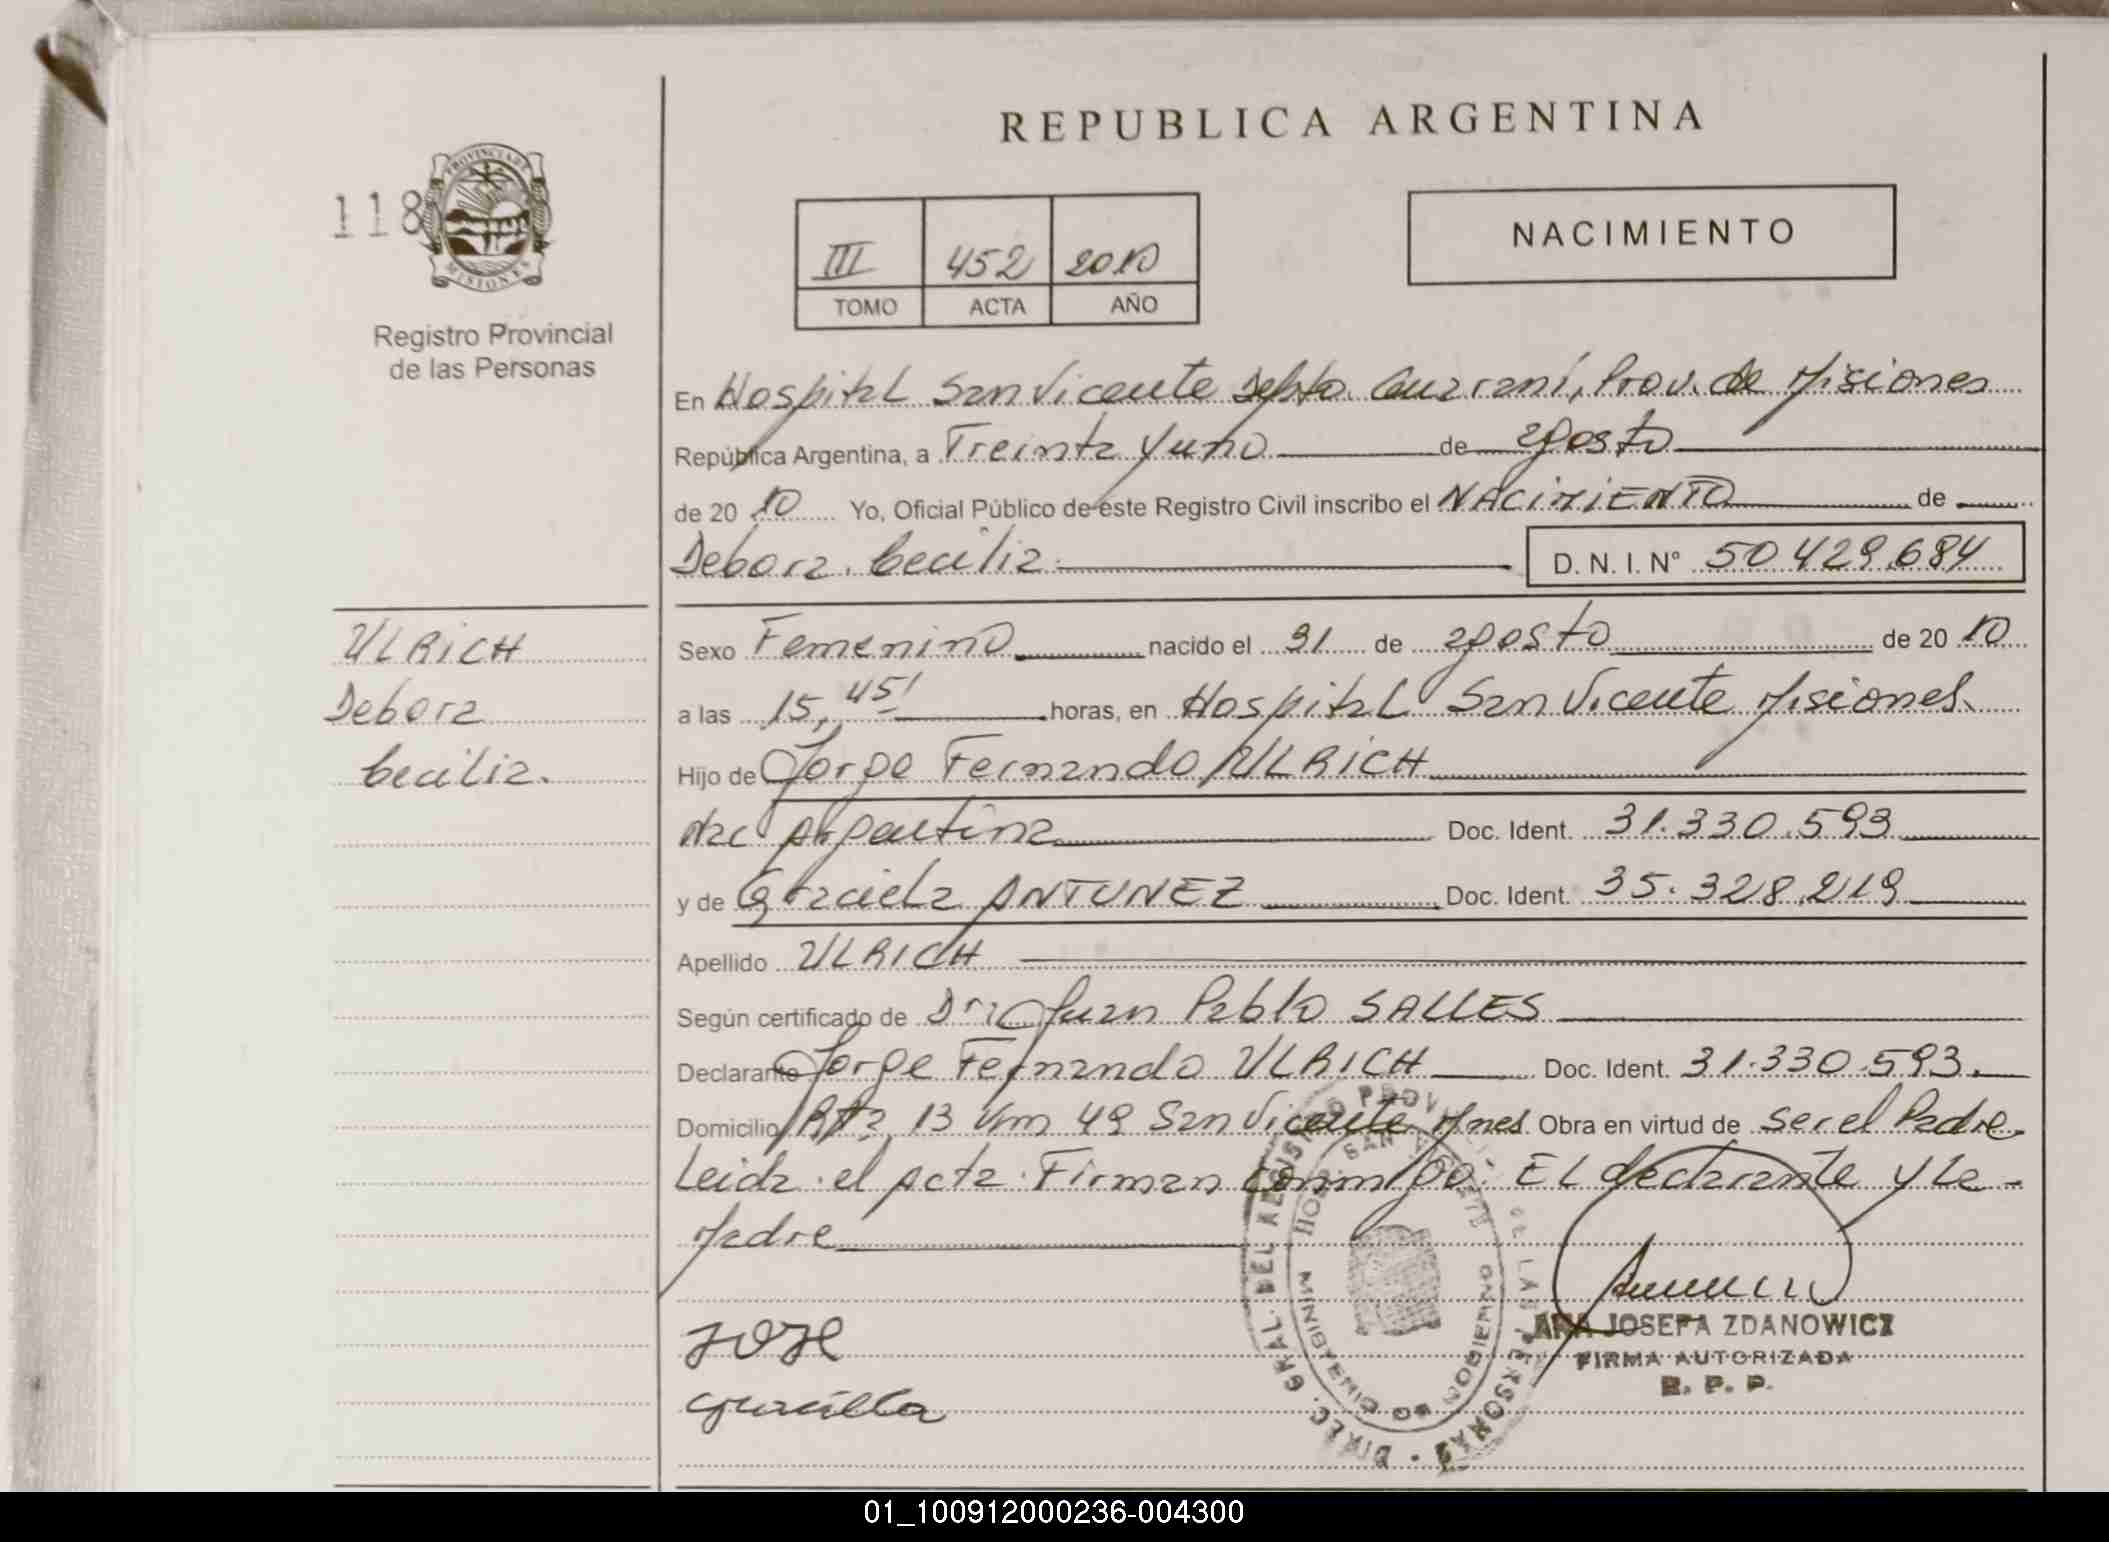 REPUBLICA ARGENTINA
118
PROVINCIA DE
MISIONES
Registro Provincial
de las Personas
III 452 2010
TOMO ACTA AÑO
NACIMIENTO
En Hospital San Vicente Depto. Guarani, Prov. de Misiones
República Argentina, a Treinta y uno de agosto
de 20 10 Yo, Oficial Público de este Registro Civil inscribo el NACIMIENTO de
Debora Cecilia D. N. I. N° 50.429.684
ULRICH
Debora
Cecilia.
Sexo Femenino nacido el 31 de agosto de 20 10
a las 15,45' horas, en Hospital San Vicente Misiones.
Hijo de Jorge Fernando ULRICH
Nac Argentina Doc. Ident. 31.330.593
y de Graciela ANTUNEZ Doc. Ident. 35.328.219
Apellido ULRICH
Según certificado de Dr. Juan Pablo SALLES
Declarante Jorge Fernando ULRICH Doc. Ident. 31.330.593.
Domicilio Rta 13 Km 49 San Vicente Mnes. Obra en virtud de ser el Padre
Leida el acta Firman conmigo. El declarante y la
Madre
JOSEFA ZDANOWICZ
FIRMA AUTORIZADA
R. P. P.
01_100912000236-004300